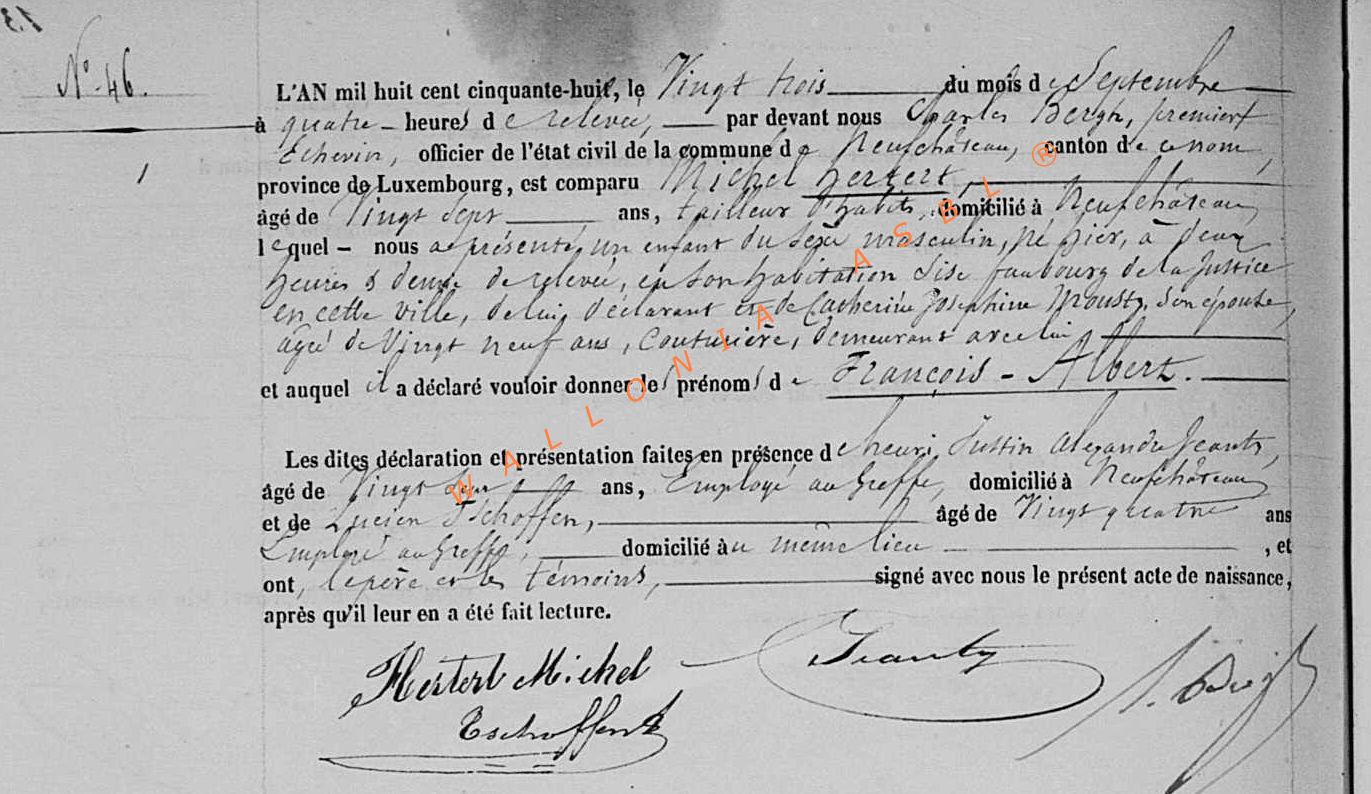 N° 46.
L'AN mil huit cent cinquante-huit, le Vingt trois du mois de Septembre
à quatre heures de relevée, par devant nous Charles Bergh, premier
Echevin, officier de l'état civil de la commune de Neufchâteau, canton de ce nom,
province de Luxembourg, est comparu Michel Hertert,
âgé de Vingt Sept ans, tailleur d'habits, domicilié à Neufchâteau
lequel nous a présenté un enfant du Sexe masculin, né hier, à deux
heures & demie de relevée, en Son habitation Sise faubourg de la Justice
en cette ville, de lui déclarant et de Catherine Josephine Mousty, Son épouse,
âgée de Vingt neuf ans, Couturière, demeurant avec lui
et auquel il a déclaré vouloir donner les prénoms de François - Albert.
Les dites déclaration et présentation faites en présence de henri, Justin Alexandre Jeanty,
âgé de Vingt ans, Employé au Greffe, domicilié à Neufchâteau
et de Lucien Tschoffen, âgé de Vingt quatre ans
Employé au Greffe, domicilié au même lieu , et
ont, le père et les témoins, signé avec nous le présent acte de naissance,
après qu'il leur en a été fait lecture.
Hertert Michel
Jeanty
Tschoffen
WALLONIA ASBL ®